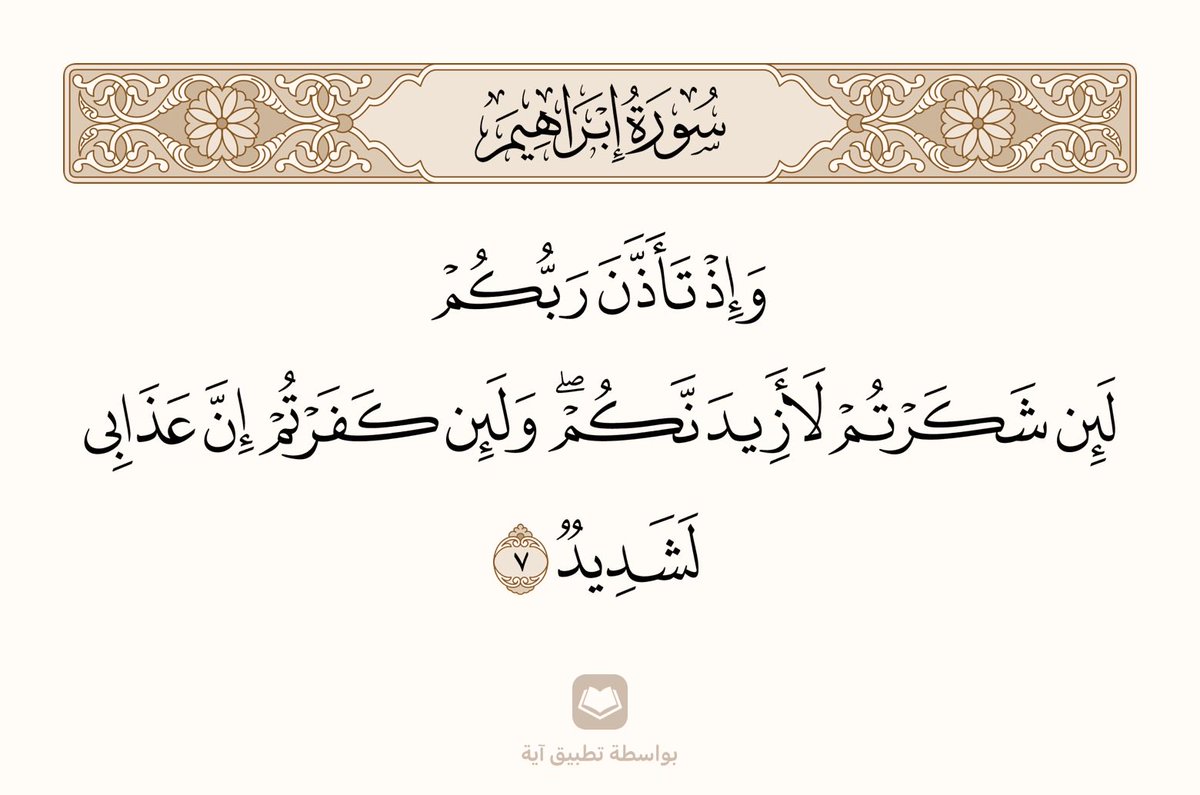 سُورَةُ إِبْرَاهِيمَ
وَإِذۡ تَأَذَّنَ رَبُّكُمۡ
لَئِن شَكَرۡتُمۡ لَأَزِيدَنَّكُمۡۖ وَلَئِن كَفَرۡتُمۡ إِنَّ عَذَابِي
لَشَدِيدٞ ٧
بواسطة تطبيق آية